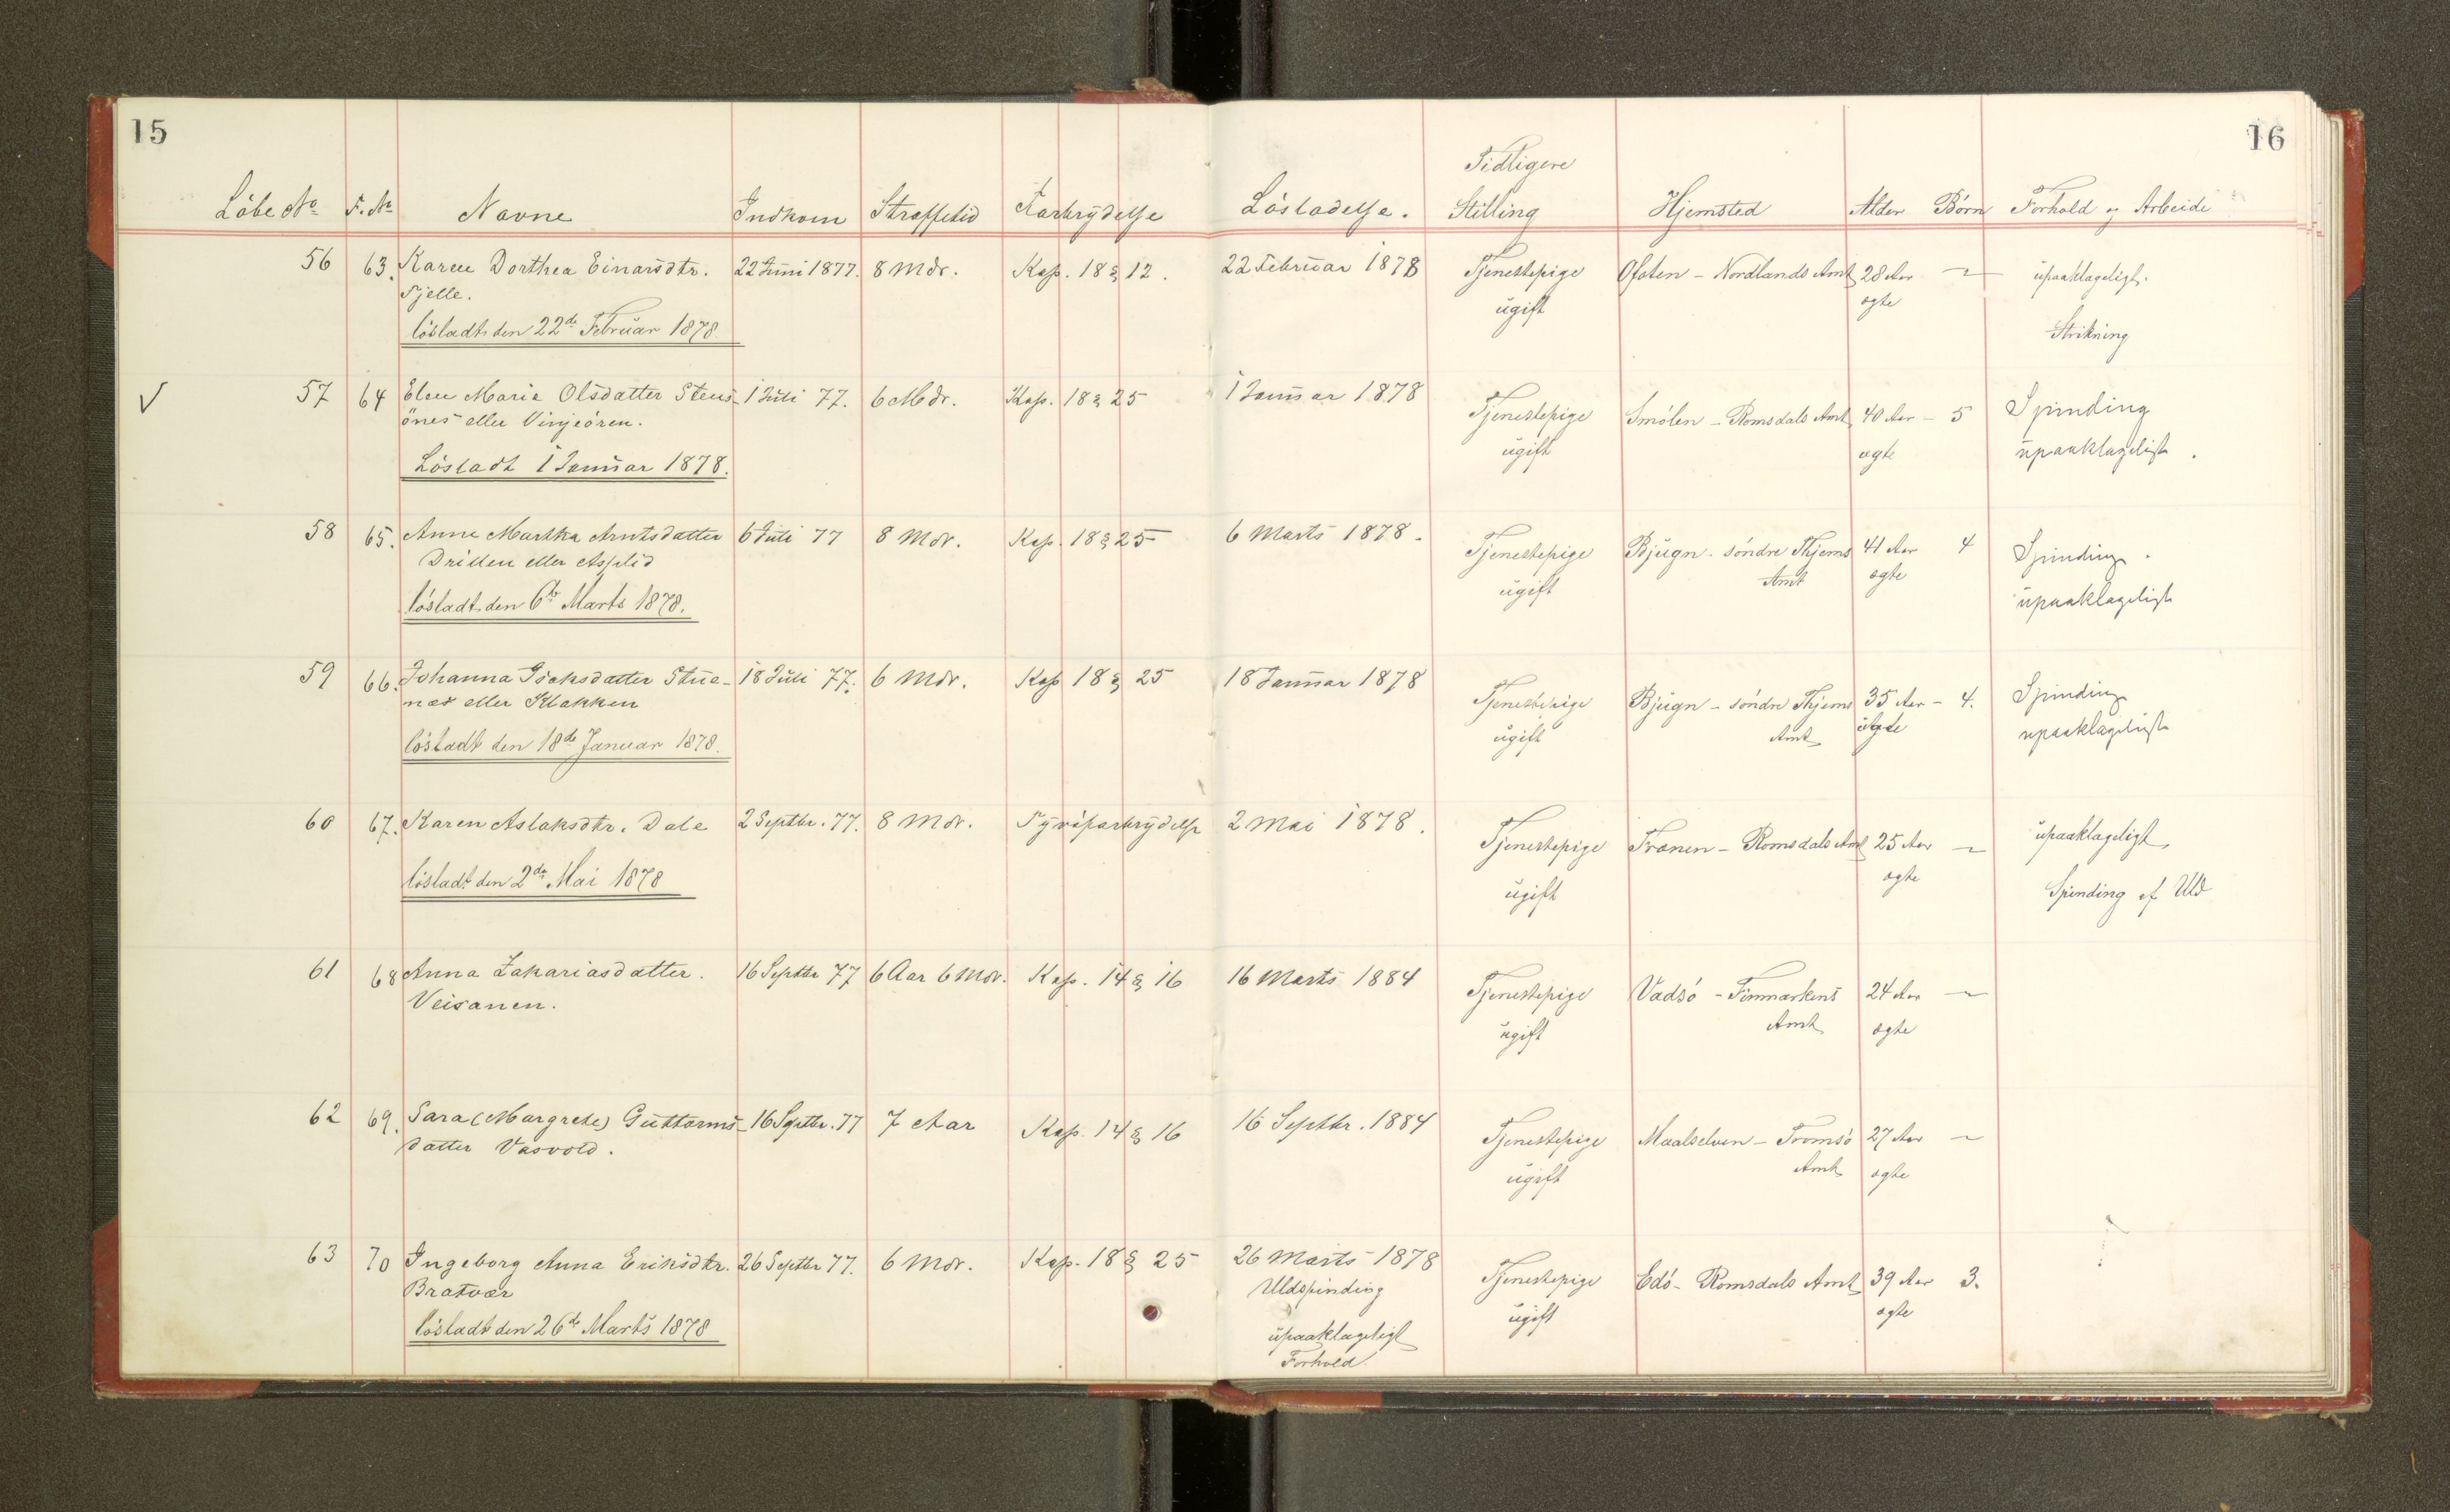 15
16
Tidligere
Löbe No F. No Navne Indkom Straffetid Forbrydelse Lösladelse. Stilling Hjemsted Alder Börn Forhold og Arbeide
56 63. Karen Dorthea Einarsdtr. 22 Juni 1877. 8 Mdr. Kap. 18 § 12. 22 Februar 1878 Tjenestepige Ofoten - Nordlands Amt 28 Aar — upaaklageligt.
Fjelle. ugift ægte
lösladt den 22de Februar 1878. Strikning
57 64 Elen Maria Olsdatter Stens- 1 Juli 77. 6 Mdr. Kap. 18 § 25 1 Januar 1878 Tjenestepige Smölen - Romsdals Amt 40 Aar - 5 Spinding
önes eller Vinjeören. ugift ægte upaaklageligt.
Lösladt 1 Januar 1878.
58 65. Anne Martha Arntsdatter 6 Juli 77 8 Mdr. Kap. 18 § 25 6 Marts 1878. Tjenestepige Bjugn - söndre Thjems 41 Aar 4 Spinding.
eller Asplid ugift Amt ægte upaaklageligt
lösladt den 6te Marts 1878.
59 66. Johanna Isaksdatter Stue- 18 Juli 77. 6 Mdr. Kap 18 § 25 18 Januar 1878 Tjenestepige Bjugn - söndre Thjems 35 Aar - 4. Spinding
næs eller Klakken ugift Amt upaaklageligt
lösladt den 18de Januar 1878.
60 67. Karen Aslaksdtr. Dale 2 Septbr. 77. 8 Mdr. Tyvsforbrydelse 2 Mai 1878. Tjenestepige Frænen - Romsdals Amt 25 Aar — upaaklageligt,
lösladt den 2den Mai 1878 ugift ægte Spinding af Uld
61 68 Anna Zakariasdatter. 16 Septbr 77 6 Aar 6 Mdr. Kap. 14 § 16 16 Marts 1884 Tjenestepige Vadsö - Finmarkens 24 Aar —
Veisanen. ugift Amt ægte
62 69. Sara (Margrete) Guttorms- 16 Septbr. 77 7 Aar Kap. 14 § 16 16 Septbr. 1884 Tjenestepige Maalselven - Tromsö 27 Aar —
datter Vasvold. ugift Amt ægte
63 70 Ingeborg Anna Eriksdtr. 26 Septbr 77. 6 Mdr. Kap. 18 § 25 26 Marts 1878 Tjenestepige Edö - Romsdals Amt 39 Aar 3.
Bratvær Uldspinding ugift ægte
lösladt den 26de Marts 1878 upaaklageligt
Forhold.